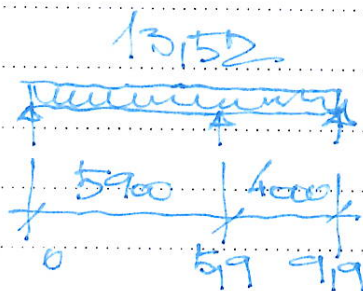 13,52
5900 4000
0 5,9 9,9